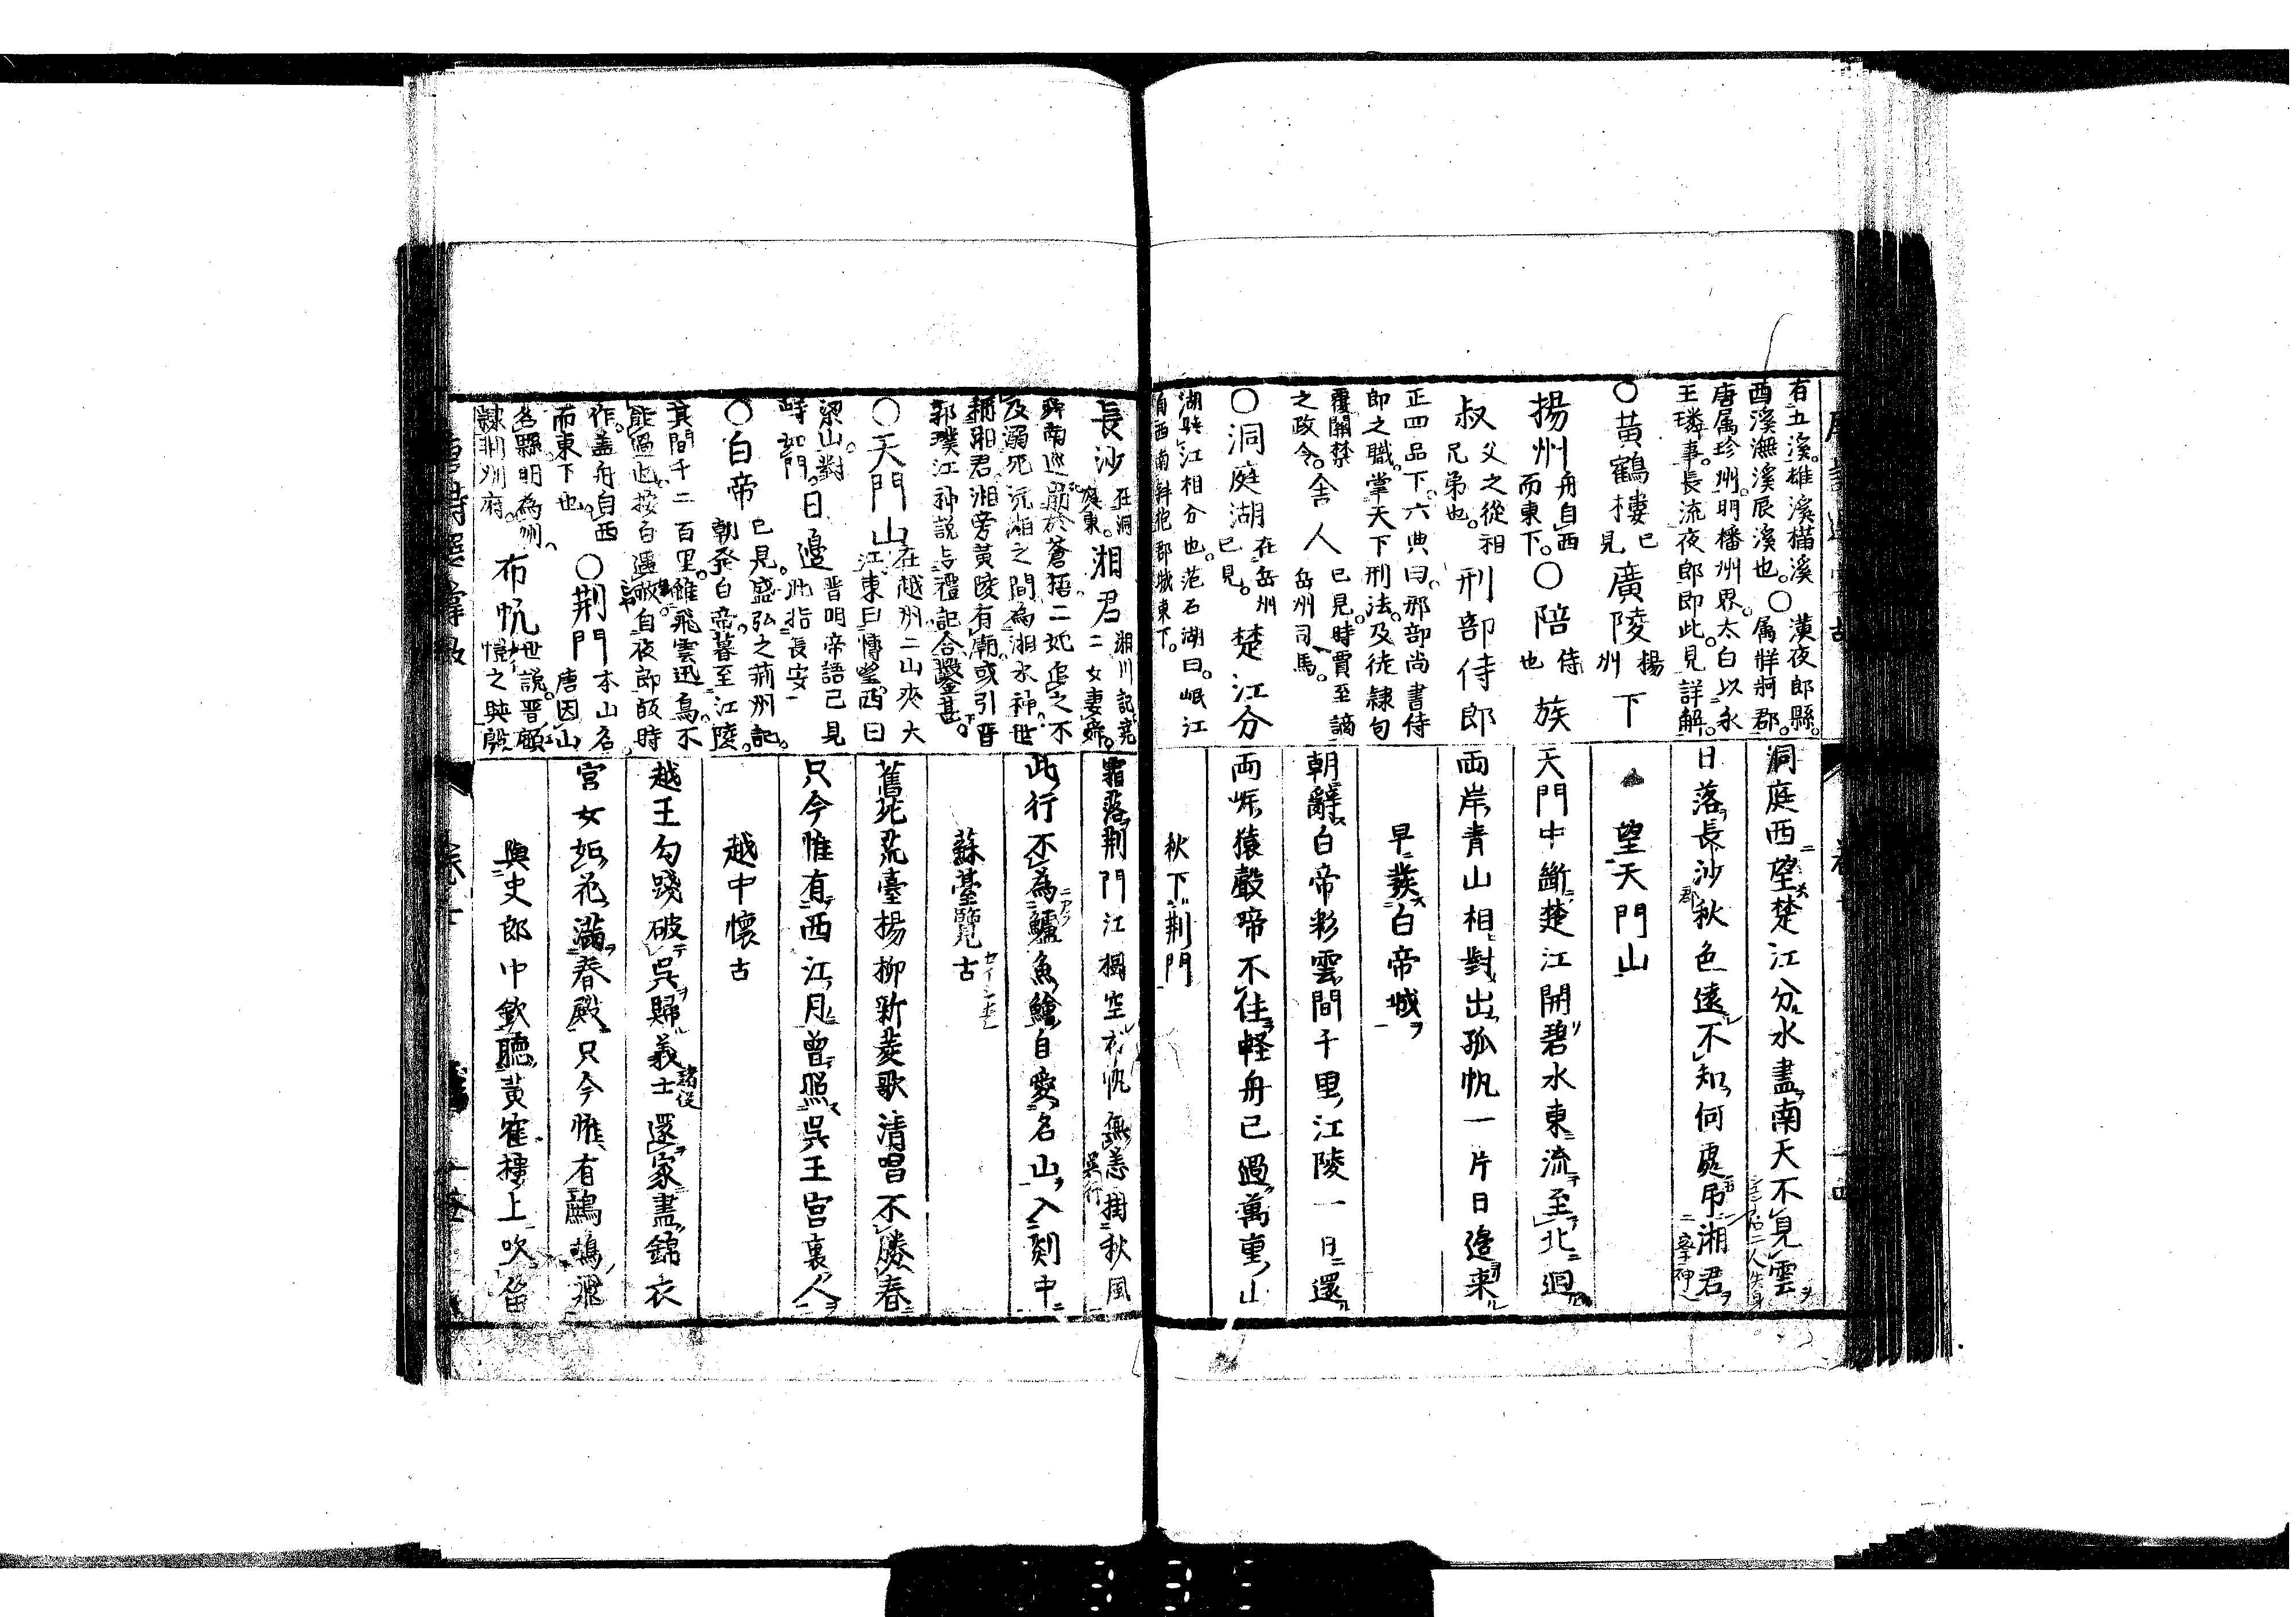 有五溪雄溪樠溪
酉溪潕溪辰溪也○漢夜郎縣
唐属珍州明播州界属牂牁郡
王璘事長流夜郎即此見詳解太白以永
○黃鶴樓已見廣陵揚州下
揚州舟自西而東下○陪侍也族
叔父之從祖兄弟也刑部侍郎
正四品下六典曰刑部尚書侍
郎之職掌天下刑法及徒隸句
覆關禁之政令舍人已見時賈至謫岳州司馬
○洞庭湖在岳州已見楚江分
湖與江相分也范石湖曰岷江
自西南斜抱郡城東下
洞庭西望楚江分水盡南天不見雲
日落長沙秋色遠不知何處吊湘君
望天門山
天門中斷楚江開碧水東流至北廻
両岸青山相對出孤帆一片日邊来
早發白帝城
朝辭白帝彩雲間千里江陵一日還
両岸猿聲啼不住軽舟已過萬重山
秋下荆門
長沙在洞庭東湘君湘川記堯二女妻舜
舜南巡崩於蒼梧二妃追之不
及溺死沅湘之間為湘水神世
稱湘君湘旁黃陵有廟或引晋
郭璞江神說與禮記合鑿甚
○天門山在越州二山夾大江東曰博望西曰
梁山對峙如門日邊晋明帝語已見此指長安
○白帝已見盛弘之荊州記朝發白帝暮至江陵
其間千二百里雖飛雲迅鳥不
能過也按白遇赦自夜郎皈時
作蓋舟自西而東下也○荊門本山名唐因山
名縣明為州隸荊州府布帆世說晋顧愷之與殷
霜落荆門江樹空布帆無恙掛秋風
此行不為鱸魚鱠自愛名山入剡中
蘇臺覽古
舊苑荒臺揚柳新菱歌清唱不勝春
只今惟有西江月曾照吳王宮裏人
越中懷古
越王勾踐破吳歸義士還家盡錦衣
宮女如花滿春殿只今惟有鷓鴣飛
與史郎中欽聽黃寉樓上吹笛